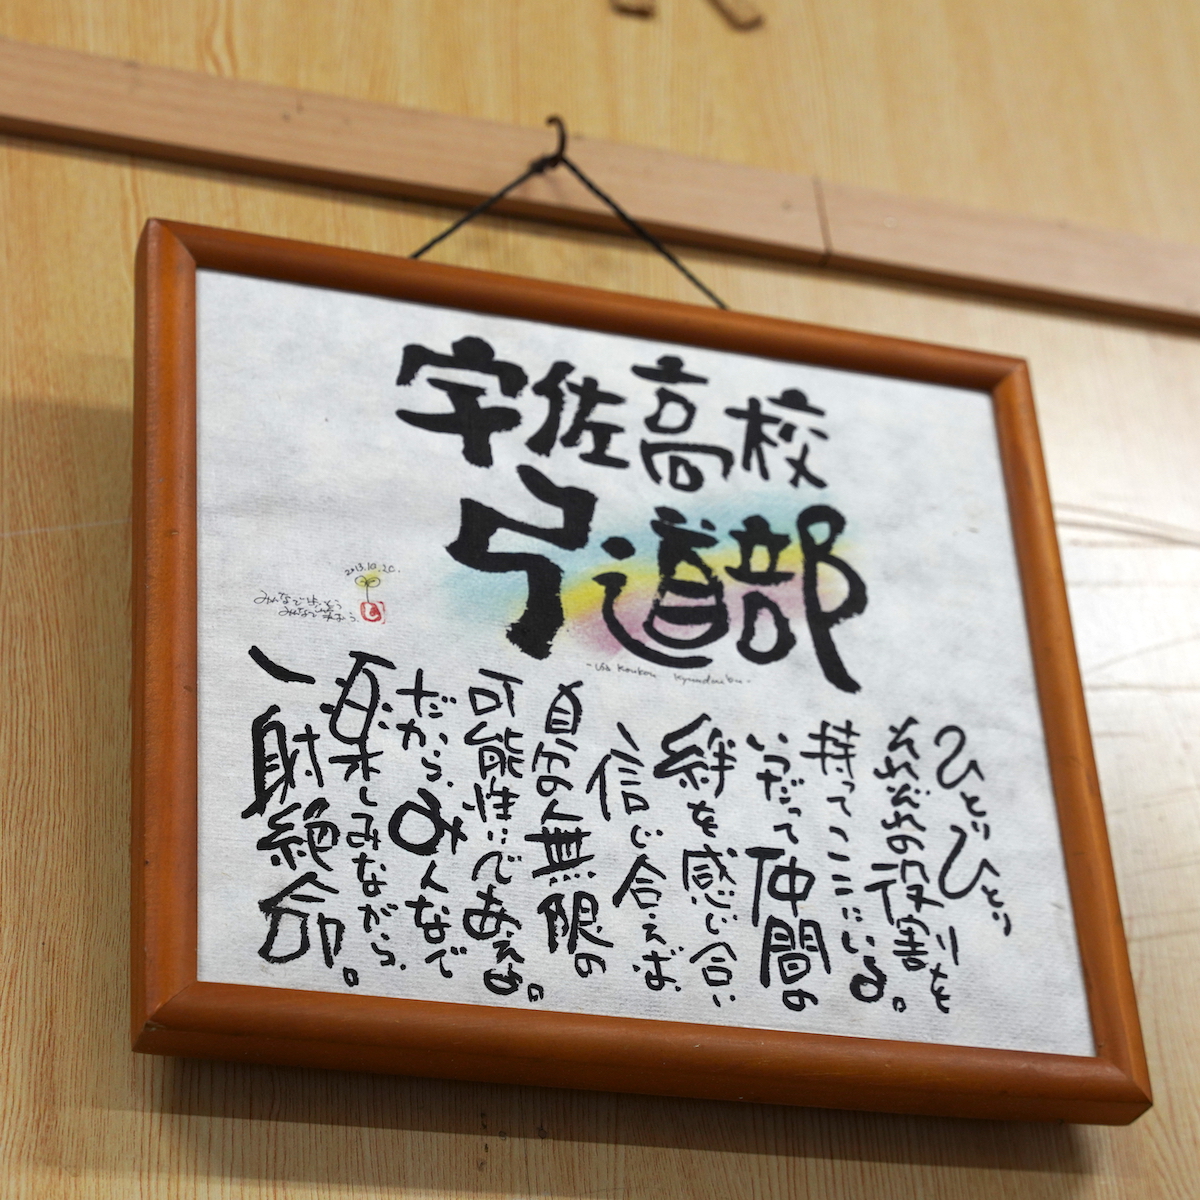 宇佐高校
弓道部
- Usa Koukou Kyuudoubu -
2013.10.20.
みんなで
みんなで
ひとりひとり
それぞれの役割を
持ってここにいる。
いつだって仲間の
絆を感じ合い
信じ合えば、
自分の無限の
可能性にであえる。
だから、みんなで
楽しみながら、
一射絶命。